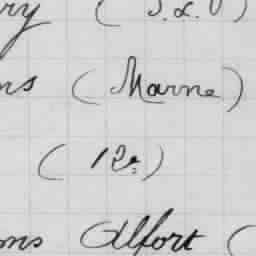 ry ( S. & O )
ns ( Marne )
( 12e )
ons Alfort (